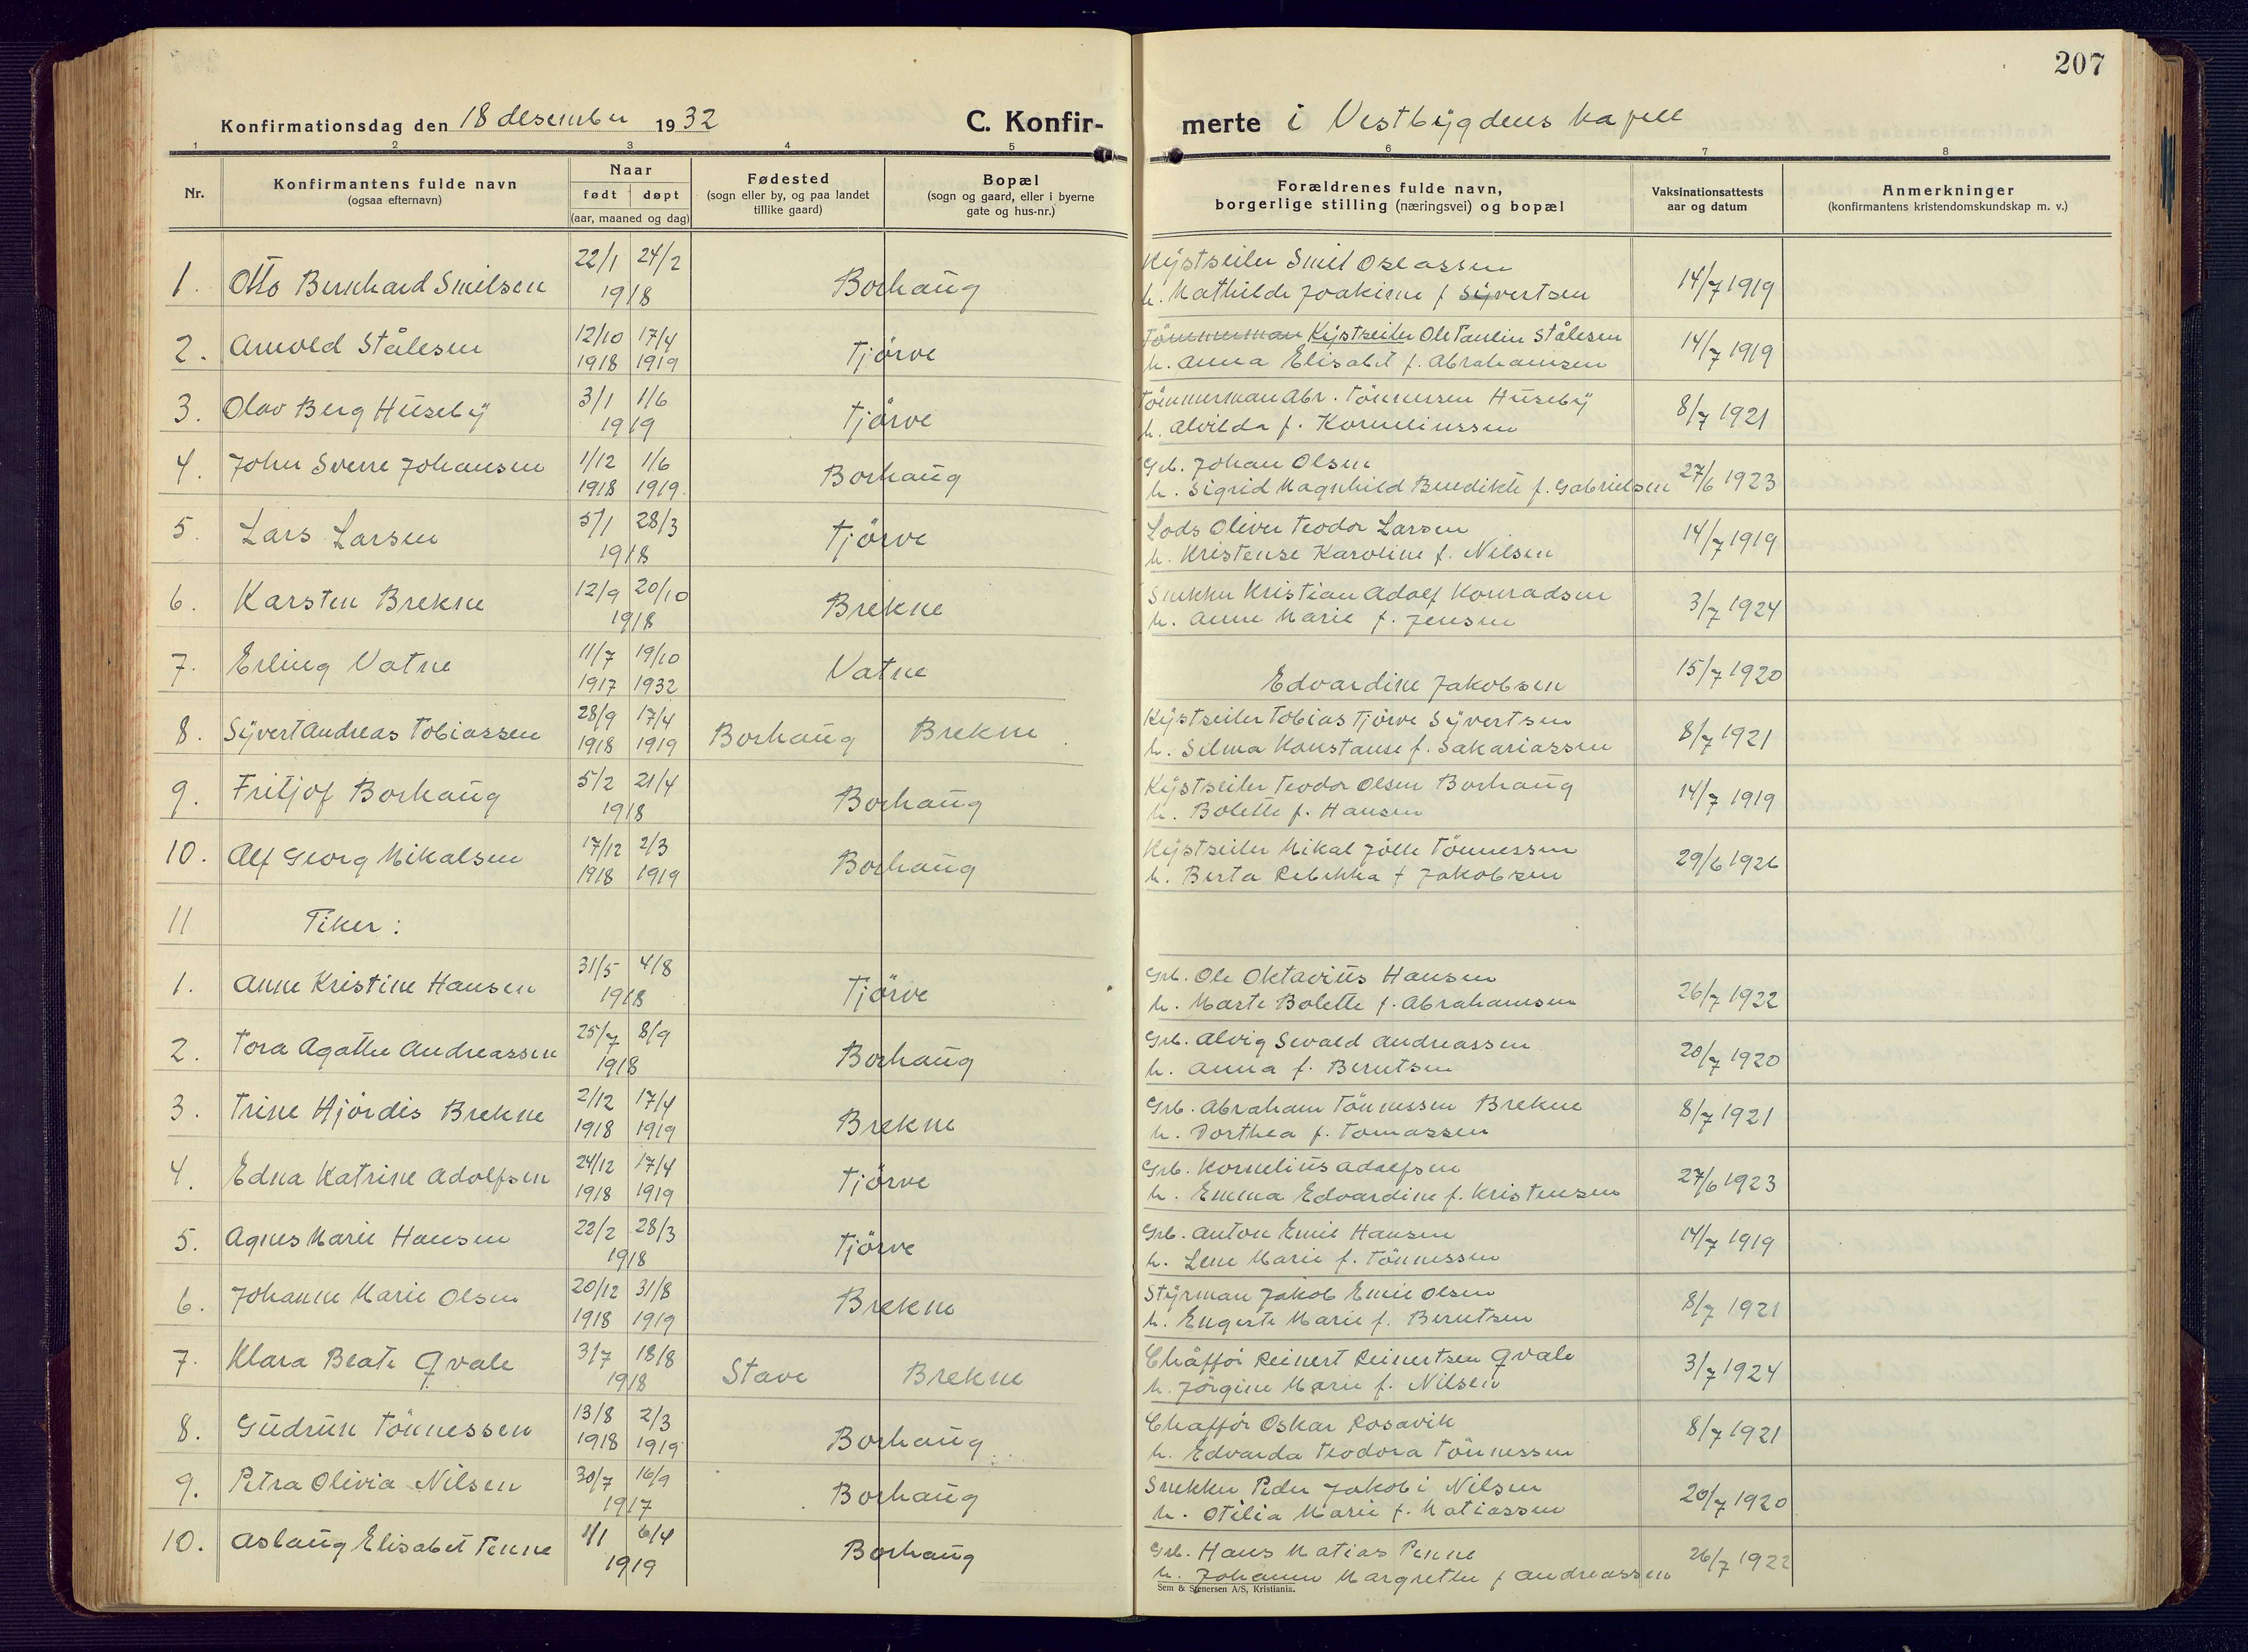 207
Konfirmationsdag den 18 desember 1932 C. Konfir-
merte i Vestbygdens kapell
1 2 3 4 5 6 7 8
Nr.
Konfirmantens fulde navn
(ogsaa efternavn)
Naar
født døpt
(aar, maaned og dag)
Fødested
(sogn eller by, og paa landet
tillike gaard)
Bopæl
(sogn og gaard, eller i byerne
gate og hus-nr.)
Forældrenes fulde navn,
borgerlige stilling (næringsvei) og bopæl
Vaksinationsattests
aar og datum
Anmerkninger
(konfirmantens kristendomskundskap m. v.)
22/1 24/2 Kystseiler Smil Oseassen
1. Otto Bernhard Smilsen 1918 Borhaug h. Mathilde Joakime f Syvertsen 14/7 1919
12/10 17/4 Tömmerman Kystseiler Ole Paulin Stålesen
2. Arnold Stålesen 1918 1919 Tjörve h. Anna Elisabet f. Abrahamsen 14/7 1919
3/1 1/6 Tömmerman Abr. Tönnesen Huseby
3. Olav Berg Huseby 1919 Tjörve h. Alvilda f. Korneliussen 8/7 1921
1/12 1/6 Grb. Johan Olsen
4. John Sverre Johansen 1918 1919 Borhaug h. Sigrid Magnhild Benedikte f. Gabrielsen 27/6 1923
5/1 28/3 Lods Oliver Teodor Larsen
5. Lars Larsen 1918 Tjörve h. Kristense Karoline f. Nilsen 14/7 1919
12/9 20/10 Snekker Kristian Adolf Konradsen
6. Karsten Brekne 1918 Brekne h. Anne Marie f. Jensen 3/7 1924
11/7 19/10
7. Erling Vatne 1917 1932 Vatne Edvardine Jakobsen 15/7 1920
28/9 17/4 Kystseiler Tobias Tjörve Syvertsen
8. Syvert Andreas Tobiassen 1918 1919 Borhaug Brekne h. Selma Konstanse f. Sakariassen 8/7 1921
5/2 21/4 Kystseiler Teodor Olsen Borhaug
9. Fritjof Borhaug 1918 Borhaug h. Bolette f. Hansen 14/7 1919
17/12 2/3 Kystseiler Mikal Jölle Tönnessen
10. Alf Georg Mikalsen 1918 1919 Borhaug h. Berta Rebekka f Jakobsen 29/6 1926
11 Piker:
31/5 4/8 Grb. Ole Oktavius Hansen
1. Anne Kristine Hansen 1918 Tjörve h. Marte Bolette f. Abrahamsen 26/7 1922
25/7 8/9 Grb. Alvig Sevald Andreassen
2. Tora Agathe Andreassen 1918 Borhaug h. Anna f. Berntsen 20/7 1920
2/12 17/4 Grb. Abraham Tönnessen Brekne
3. Trine Hjördis Brekne 1918 1919 Brekne h. Dorthea f. Tomassen 8/7 1921
24/12 17/4 Grb. Kornelius Adolfsen
4. Edna Katrine Adolfsen 1918 1919 Tjörve h. Emma Edvardine f. Kristensen 27/6 1923
22/2 28/3 Grb. Anton Emil Hansen
5. Agnes Marie Hansen 1918 Tjörve h. Lene Marie f. Tönnessen 14/7 1919
20/12 31/8 Styrman Jakob Emil Olsen
6. Johanne Marie Olsen 1918 1919 Brekne h. Engeste Marie f. Berntsen 8/7 1921
3/7 18/8 Chåfför Reinert Reinertsen Qvale
7. Klara Beate Qvale 1918 Stave Brekne h. Jörgine Marie f. Nilsen 3/7 1924
13/8 2/3 Chafför Oskar Rosavik
8. Gudrun Tönnessen 1918 1919 Borhaug h. Edvarda Teodora Tönnessen 8/7 1921
30/7 16/9 Snekker Peder Jakobi Nilsen
9. Petra Olivia Nilsen 1917 Borhaug h. Otilia Marie f. Matiassen 20/7 1920
1/1 6/4 Grb. Hans Matias Penne
10. Aslaug Elisabet Penne 1919 Borhaug h. Johanne Margrethe f Andreassen 26/7 1922
Sem & Stenersen A/S, Kristiania.